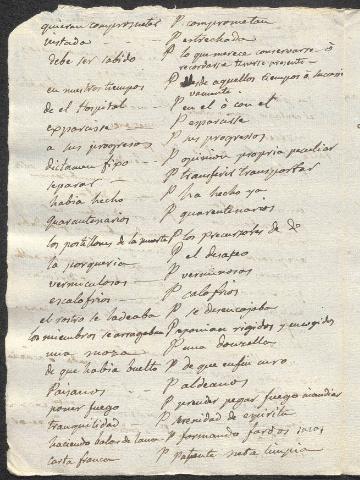 quieran comprometer P comprometan
vistada P estrechada
debe ser sabido P lo que merece conservarse ò
recordarse tenerse presente
en nuestros tiempos P desde aquellos tiempos à
vamente
de el Hospital P en el ò con el
exparasse P esparsisse
a sus progresos P sus progresos
dictamen fixo P opinion propria peculiar
separar P transferir transportar
habia hecho P ha hecho ya
quarantenarios P quarentenarios
los postillones de la muerte P los precursores de do
la porqueria P el desaseo
vermiculosos P verminosos
escalofrios P calofrios
el rostro se ladeaba P se desencajaba
los miembros se arrugaban P ponian rigidos y encogidos
una moza P una donzella
de que habia buelto P de que
Paisanos P aldeanos
poner fuego P prender pegar fuego incendiar
tranquilidad P serenidad de espiritu
haciendo balas de lana P formando fardos sacos
carta franca P patente neta limpia